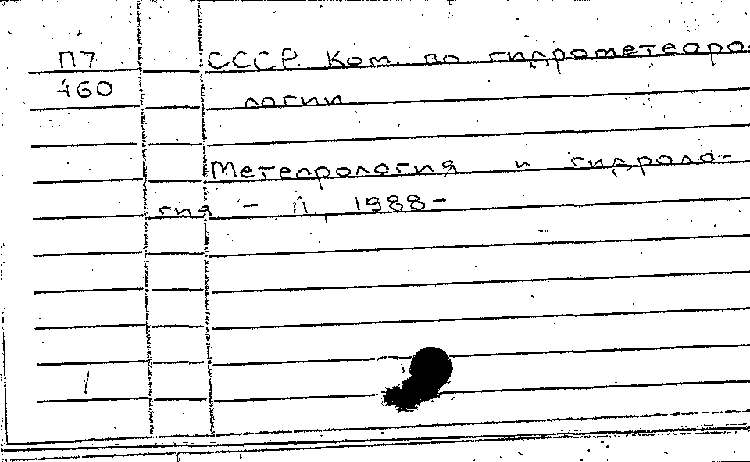 П7 СССР. Ком. по гидрометеоро
460 логии
Метеорология и гидроло-
гия - Л, 1988-